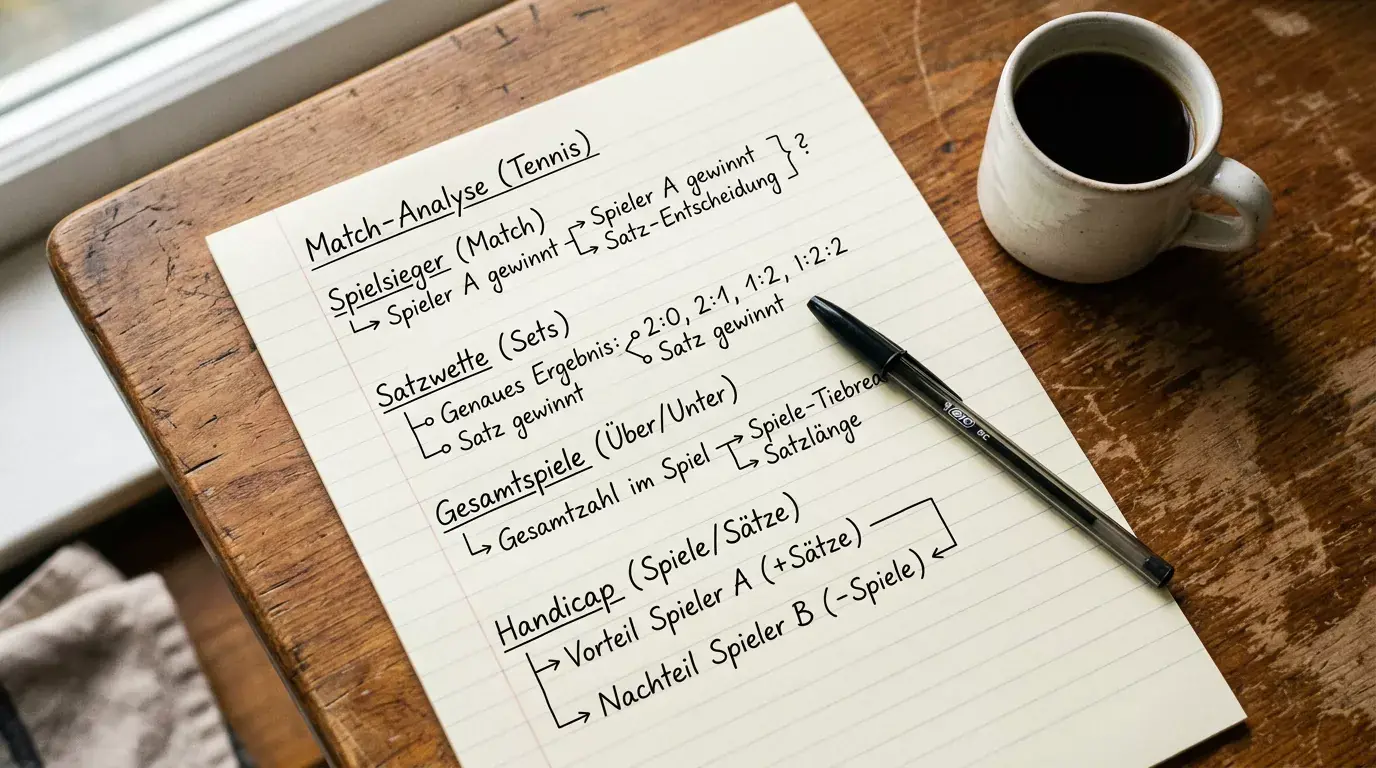 Match-Analyse (Tennis)
Spielsieger (Match)
↳ Spieler A gewinnt → Spieler A gewinnt } ?
↳ Satz-Entscheidung
Satzwette (Sets)
Genaues Ergebnis: 2:0, 2:1, 1:2, 1:2:2
Satz gewinnt
Satz gewinnt
Gesamtspiele (Über/Unter)
↳ Gesamtzahl im Spiel → Spiele-Tiebrea
↳ Satzlänge
Handicap (Spiele/Sätze)
→ Vorteil Spieler A (+Sätze)
→ Nachteil Spieler B (-Spiele)